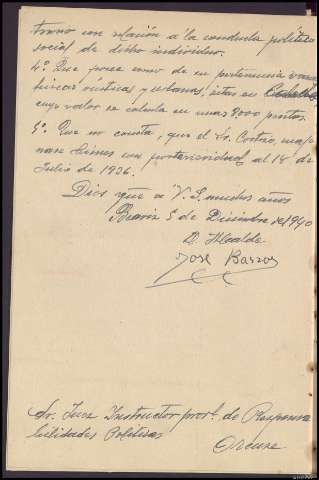 trono con relación a la conducta político
social de dicho individuo.
4º Que posee como de su pertenencia varias
fincas rústicas y urbanas, sitas en
cuyo valor se calcula en unas 9.000 pesetas.
5º Que no consta, que el Sr. Castro,
bienes con posterioridad al 18 de
Julio de 1936.
Dios gue a V. S. muchos años
Beariz 5 de Diciembre de 1940
El Alcalde
José Barros
Sr. Juez Instructor provl. de Responsa
bilidades Políticas
Orense